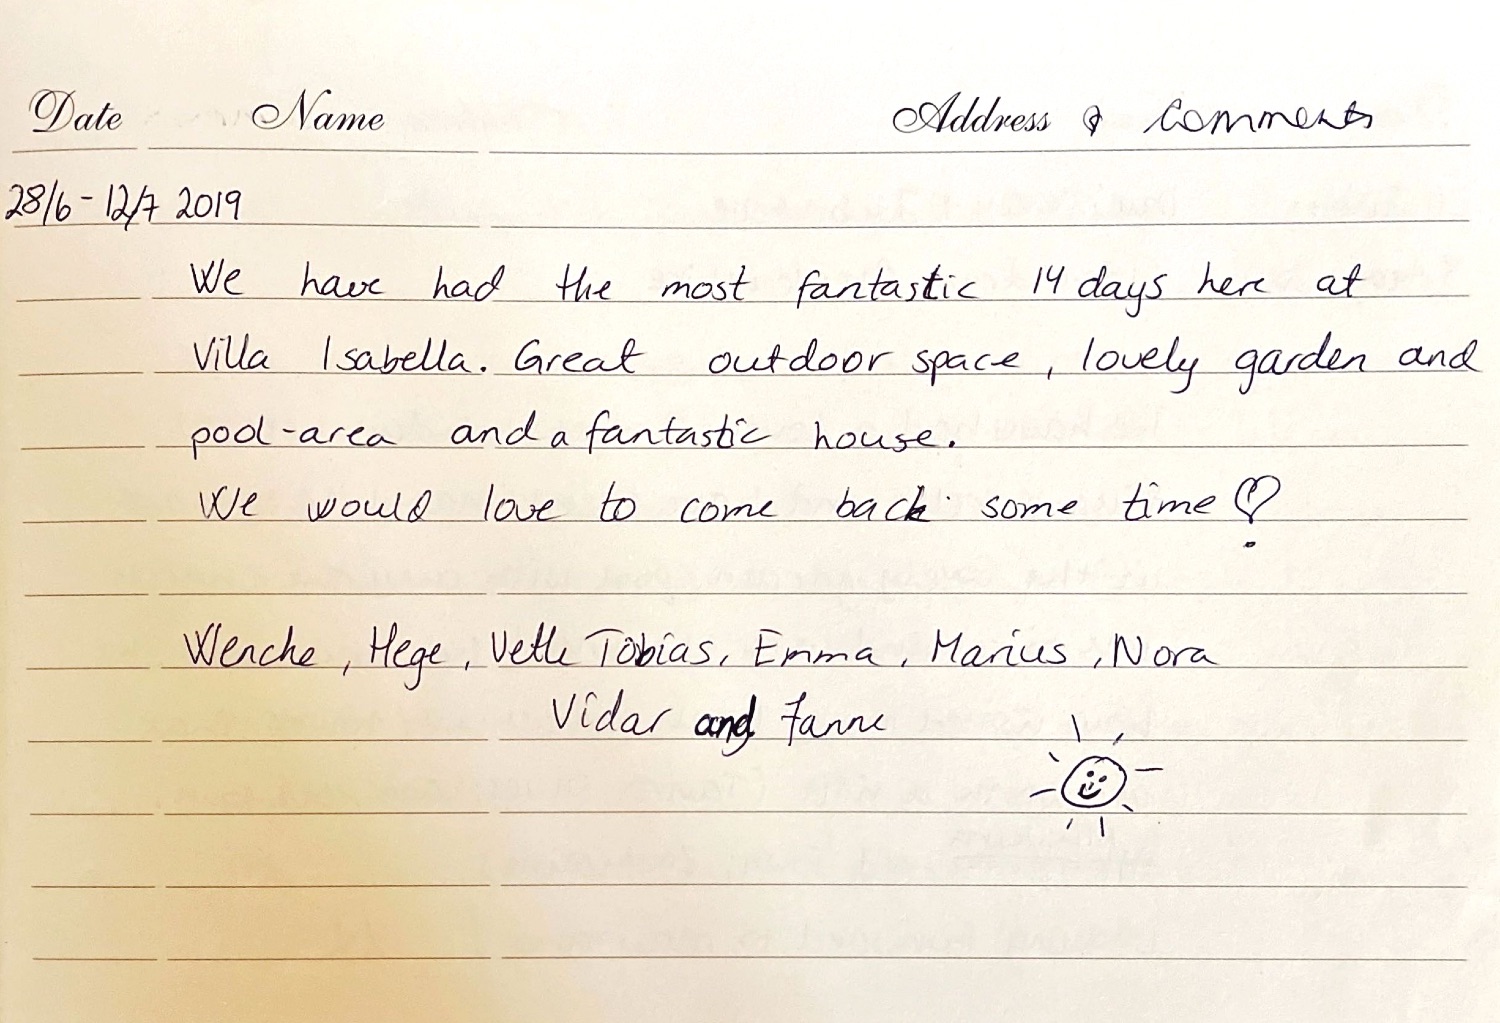 Date Name Address & Comments
28/6 - 12/7 2019
We have had the most fantastic 14 days here at
Villa Isabella. Great outdoor space, lovely garden and
pool-area and a fantastic house.
We would love to come back some time
Wenche, Hege, Vetle Tobias, Emma, Marius, Nora
Vidar and Janne